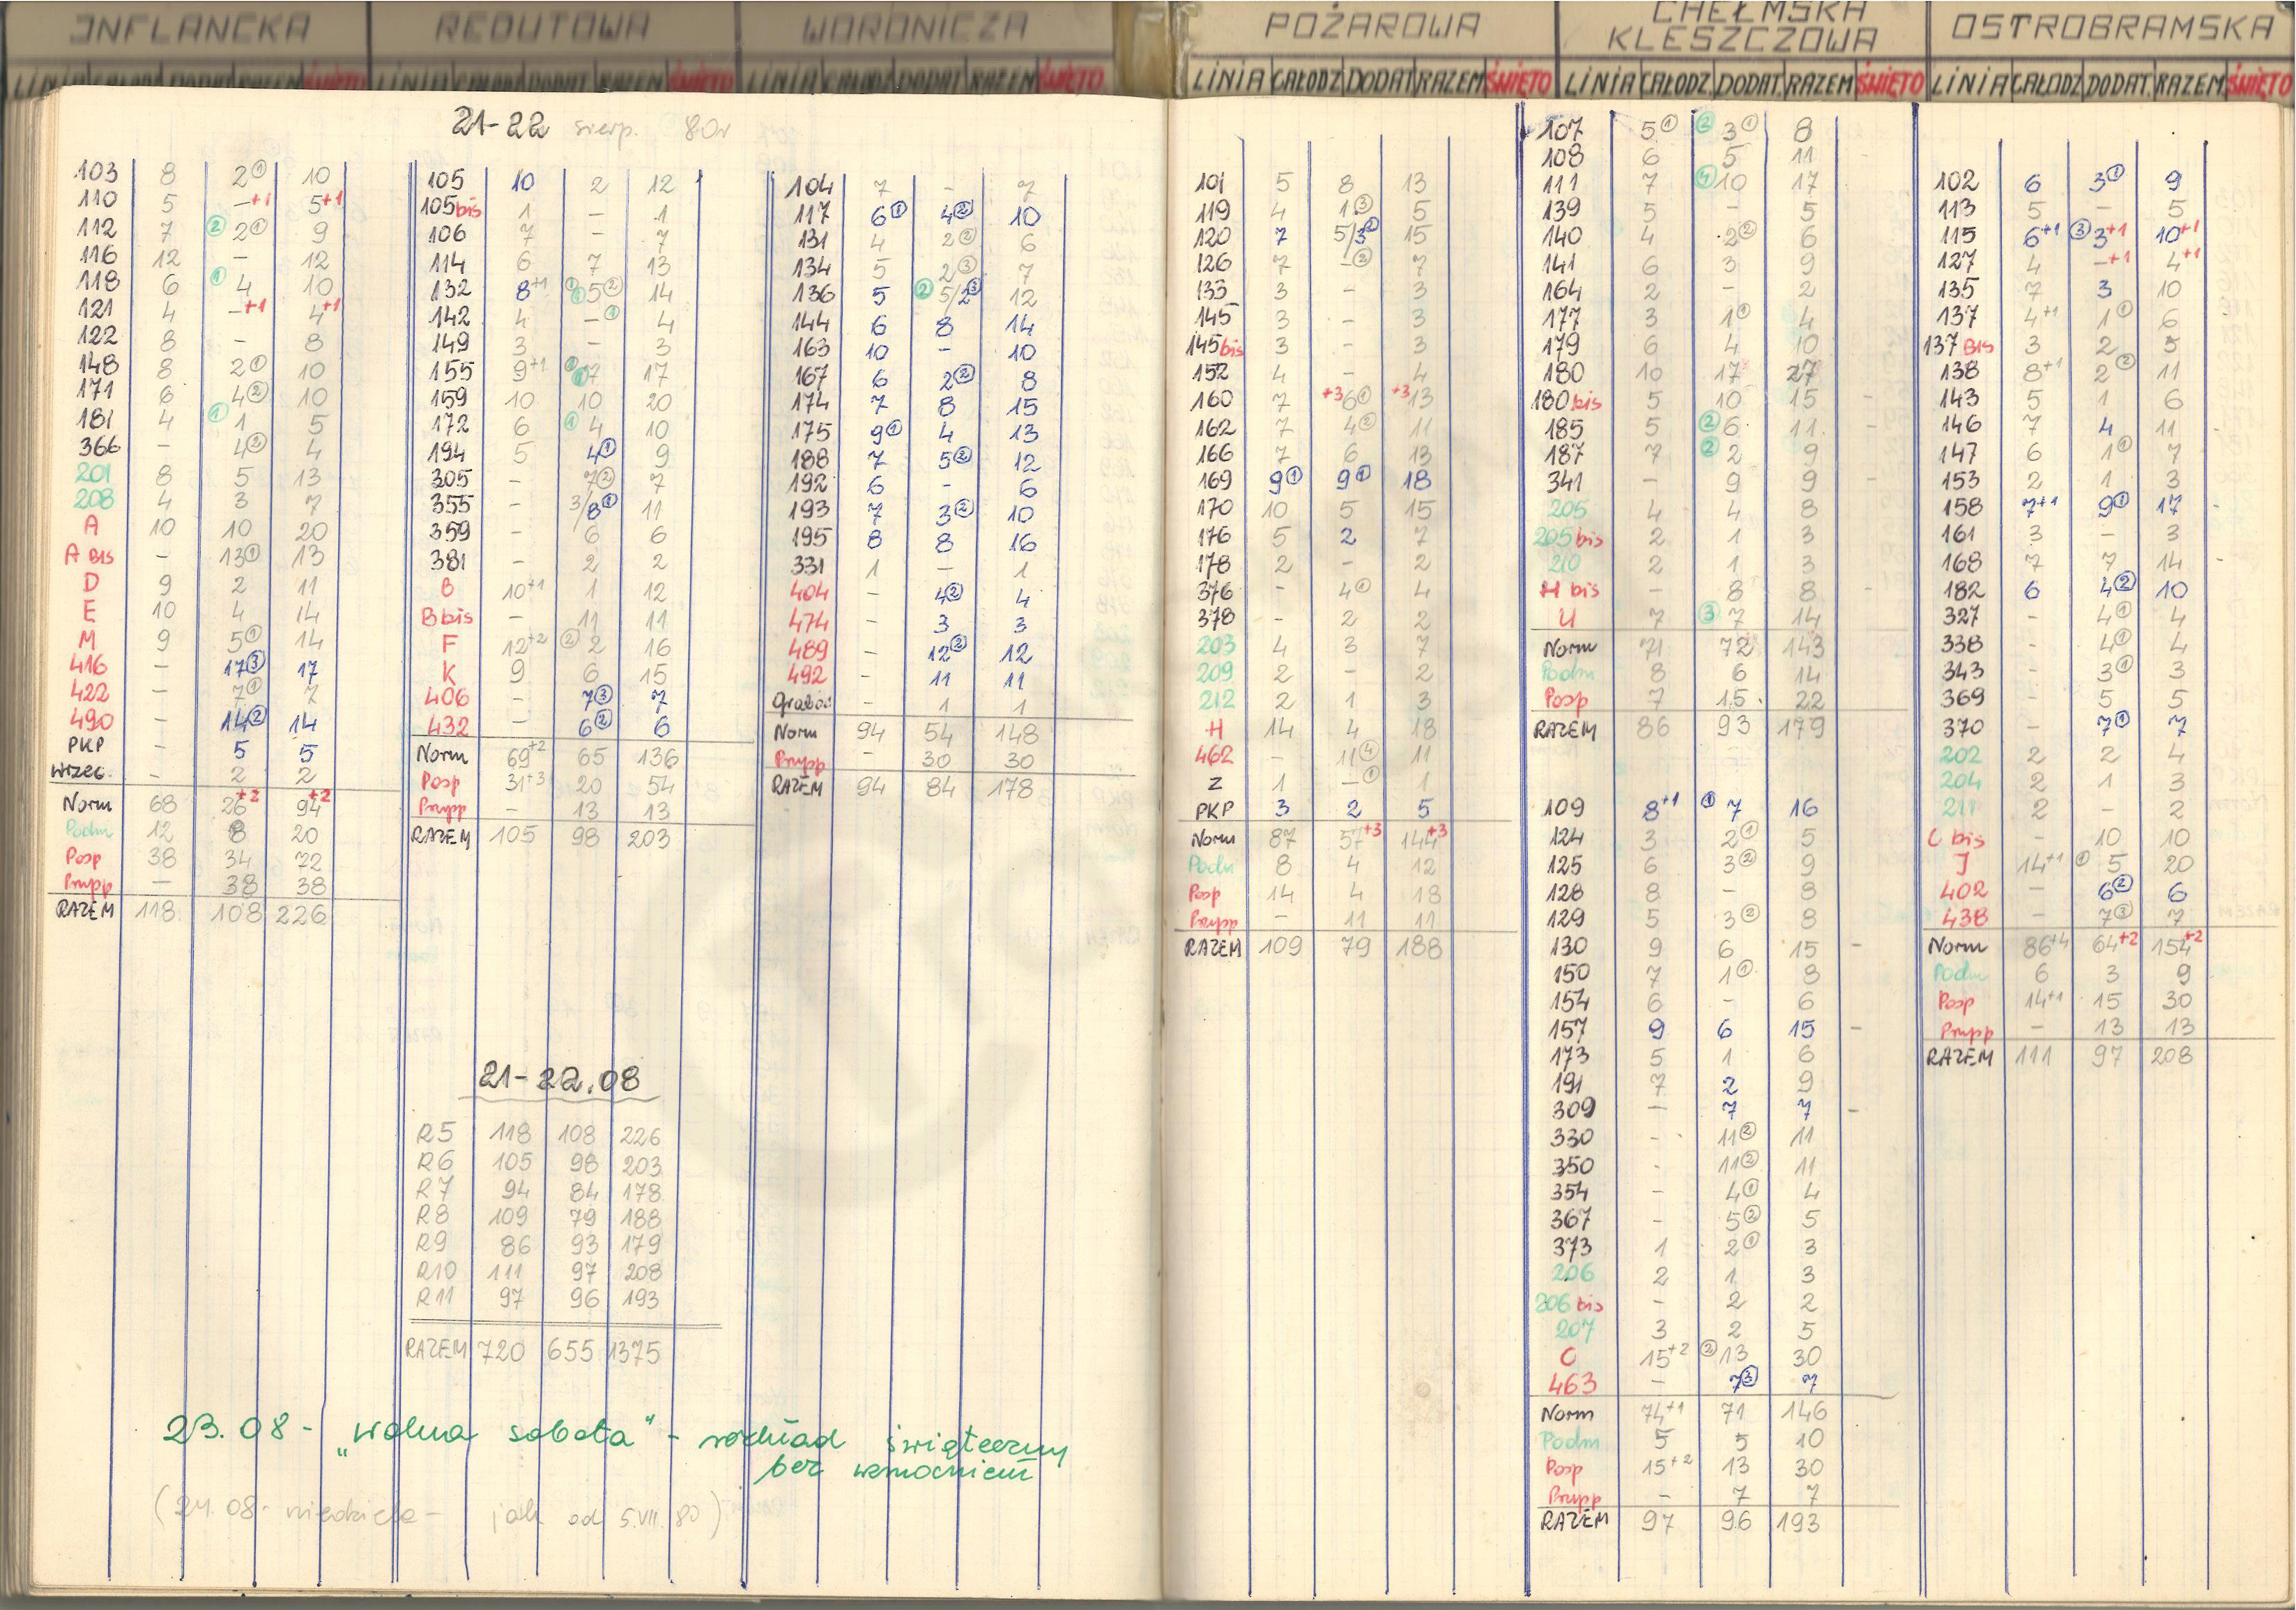 INFLANCKA
LINIA CAŁODZ DODAT RAZEM ŚWIĘTO
21-22 sierp. 80r
103 8 2① 10
110 5 -+1 5+1
112 7 ② 2① 9
116 12 - 12
118 6 ① 4 10
121 4 -+1 4+1
122 8 - 8
148 8 2① 10
171 6 4② 10
181 4 ① 1 5
366 - 4② 4
201 8 5 13
208 4 3 7
A 10 10 20
A BIS - 13① 13
D 9 2 11
E 10 4 14
M 9 5① 14
416 - 17③ 17
422 - 7① 7
490 - 14② 14
PKP - 5 5
Wrzec. - 2 2
Norm 68 26+2 94+2
Podm 12 8 20
Posp 38 34 72
Przysp - 38 38
RAZEM 118 108 226
REDUTOWA
LINIA CAŁODZ DODAT RAZEM ŚWIĘTO
105 10 2 12
105bis 1 - 1
106 7 - 7
114 6 7 13
132 8+1 ① ① 5② 14
142 4 - ① 4
149 3 - 3
155 9+1 ① ① 7 17
159 10 10 20
172 6 ① 4 10
194 5 4① 9
305 - 7② 7
355 - 3/8① 11
359 - 6 6
381 - 2 2
B 10+1 1 12
B bis - 11 11
F 12+2 ② 2 16
K 9 6 15
406 - 7③ 7
432 - 6② 6
Norm 69+2 65 136
Posp 31+3 20 54
Przysp - 13 13
RAZEM 105 98 203
21-22.08
R5 118 108 226
R6 105 98 203
R7 94 84 178
R8 109 79 188
R9 86 93 179
R10 111 97 208
R11 97 96 193
RAZEM 720 655 1375
WORONICZA
LINIA CAŁODZ DODAT RAZEM ŚWIĘTO
104 7 - 7
117 6① 4② 10
131 4 2② 6
134 5 2③ 7
136 5 ② 5/2③ 12
144 6 8 14
163 10 - 10
167 6 2② 8
174 7 8 15
175 9① 4 13
188 7 5② 12
192 6 - 6
193 7 3② 10
195 8 8 16
331 1 - 1
404 - 4② 4
474 - 3 3
489 - 12② 12
492 - 11 11
- 1 1
Norm 94 54 148
Przysp - 30 30
RAZEM 94 84 178
23.08 - „wolna sobota" - rozkład świąteczny
bez wzmocnień
(24.08 - niedziela - jak od 5.VII.80)
POŻAROWA
LINIA CAŁODZ DODAT RAZEM ŚWIĘTO
101 5 8 13
119 4 1③ 5
120 7 5/3② 15
126 7 -② 7
133 3 - 3
145 3 - 3
145bis 3 - 3
152 4 - 4
160 7 +3 6① +3 13
162 7 4② 11
166 7 6 13
169 9① 9① 18
170 10 5 15
176 5 2 7
178 2 - 2
376 - 4① 4
378 - 2 2
203 4 3 7
209 2 - 2
212 2 1 3
H 14 4 18
462 - 11④ 11
Z 1 -① 1
PKP 3 2 5
Norm 87 57+3 144+3
Podm 8 4 12
Posp 14 4 18
Przysp - 11 11
RAZEM 109 79 188
CHEŁMSKA
KLESZCZOWA
LINIA CAŁODZ. DODAT. RAZEM ŚWIĘTO
107 5① ② 3① 8
108 6 5 11
111 7 ④ 10 17
139 5 - 5
140 4 2② 6
141 6 3 9
164 2 - 2
177 3 1① 4
179 6 4 10
180 10 17 27
180bis 5 10 15 -
185 5 ② 6 11 -
187 7 ② 2 9
341 - 9 9 -
205 4 4 8
205bis 2 1 3
210 2 1 3
H bis - 8 8 -
U 7 ③ 7 14
Norm 71 72 143
Podm 8 6 14
Posp 7 15 22
RAZEM 86 93 179
109 8+1 ① 7 16
124 3 2① 5
125 6 3② 9
128 8 - 8
129 5 3② 8
130 9 6 15 -
150 7 1① 8
154 6 - 6
157 9 6 15 -
173 5 1 6
191 7 2 9
309 - 7 7 -
330 - 11② 11
350 - 11② 11
354 - 4① 4
367 - 5② 5
373 1 2① 3
206 2 1 3
206bis - 2 2
207 3 2 5
C 15+2 ② 13 30
463 - 7③ 7
Norm 74+1 71 146
Podm 5 5 10
Posp 15+2 13 30
Przysp - 7 7
RAZEM 97 96 193
OSTROBRAMSKA
LINIA CAŁODZ DODAT. RAZEM ŚWIĘTO
102 6 3① 9
113 5 - 5
115 6+1 ③ 3+1 10+1
127 4 -+1 4+1
135 7 3 10
137 4+1 1① 6
137 BIS 3 2 5
138 8+1 2② 11
143 5 1 6
146 7 4 11 -
147 6 1① 7
153 2 1 3
158 7+1 9① 17 -
161 3 - 3
168 7 7 14 -
182 6 4② 10
327 - 4① 4
338 - 4① 4
343 - 3① 3
369 - 5 5
370 - 7① 7
202 2 2 4
204 2 1 3
211 2 - 2
C bis - 10 10
J 14+1 ① 5 20
402 - 6② 6
438 - 7③ 7
Norm 86+4 64+2 154+2
Podm 6 3 9
Posp 14+1 15 30
Przysp - 13 13
RAZEM 111 97 208